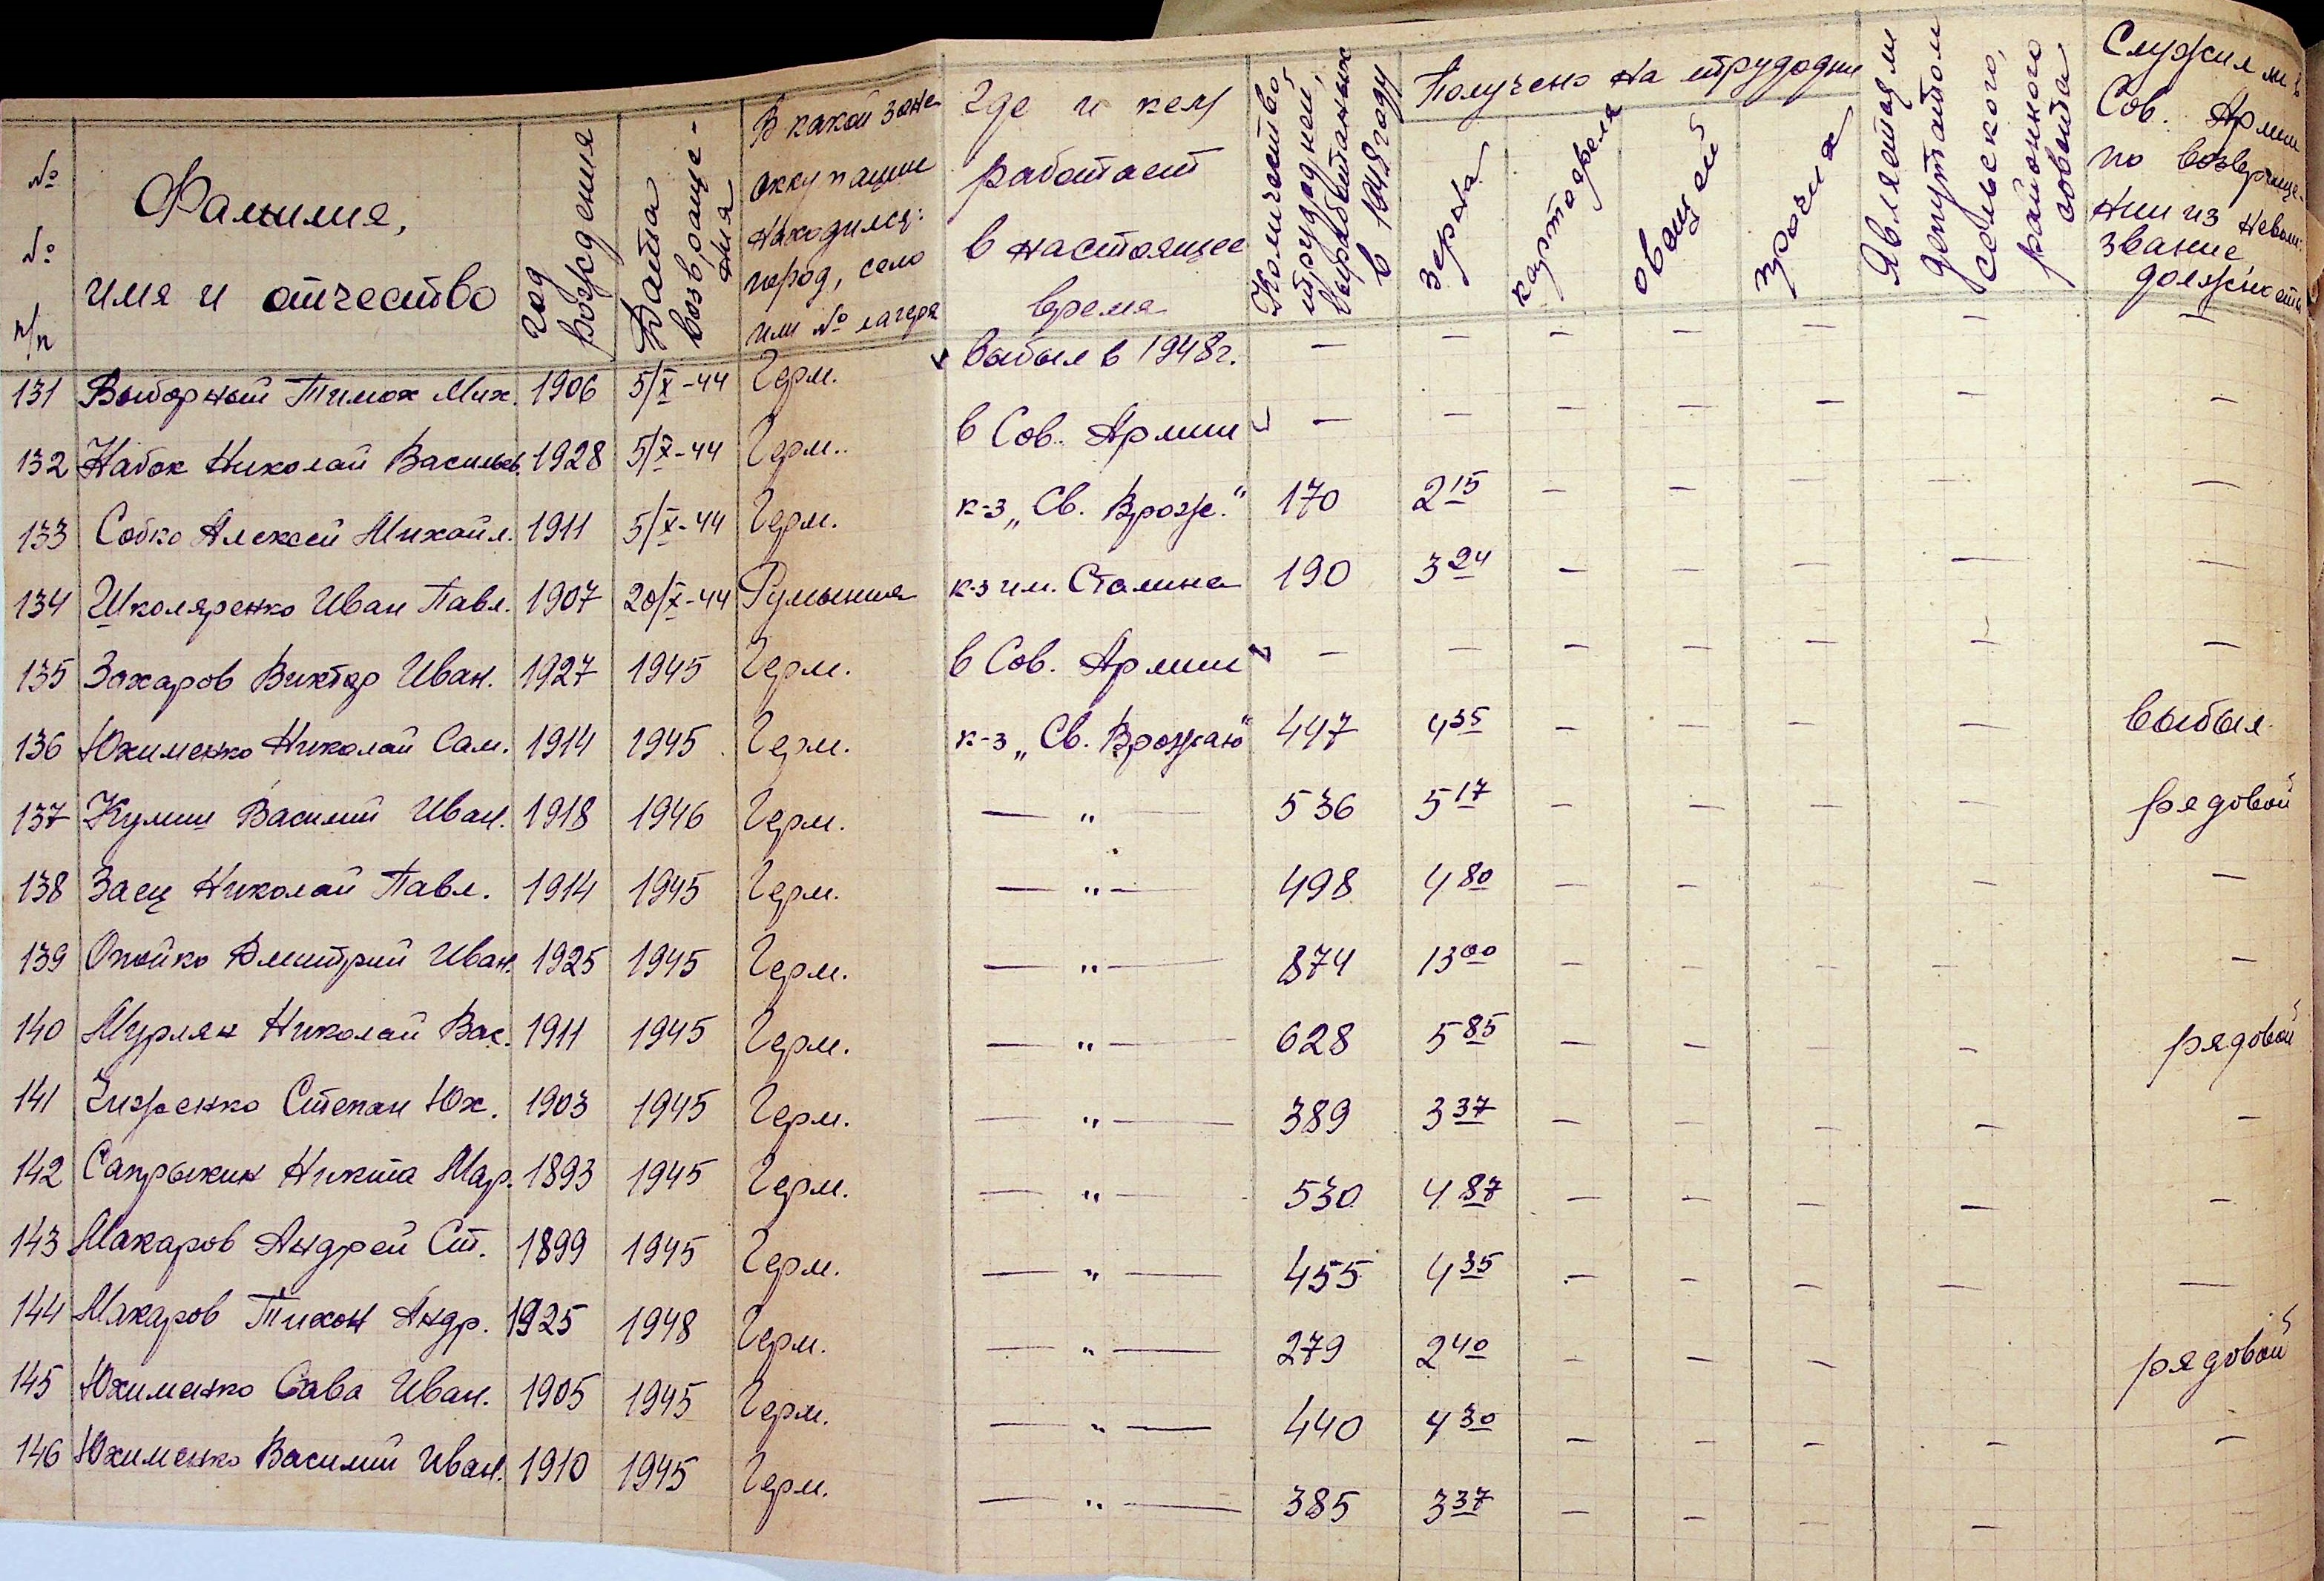 № № п/п
Фамилия, имя и отчество
год рождения
Дата возвращения
В какой зоне оккупации находился: город, село или № лагеря
Где и кем работает в настоящее время
Количество трудодней, выработаных в 1948 году
Получено на трудодни
зерна
картофеля
овощей
прочия
Является ли депутатом сельского, районного совета
Служил ли в Сов. Армии по возвращении из неволи: звание должность
131 Выборный Тимох Мих. 1906 5/X-44 Герм. выбыл в 1948 г. — — — — — — —
132 Набок Николай Васильев. 1928 5/X-44 Герм. в Сов. Армии — — — — — — —
133 Собко Алексей Михайл. 1911 5/X-44 Герм. к-з „Св. Врож." 170 2 15 — — — — —
134 Школяренко Иван Павл. 1907 20/X-44 Румыния к-з им. Сталина 190 3 24 — — — — —
135 Захаров Виктор Иван. 1927 1945 Герм. в Сов. Армии — — — — — — —
136 Юхименко Николай Сам. 1914 1945 Герм. к-з „Св. Врожаю" 447 4 35 — — — — выбыл
137 Кумиш Василий Иван. 1918 1946 Герм. — „ — 536 5 17 — — — — рядовой
138 Заец Николай Павл. 1914 1945 Герм. — „ — 498 4 80 — — — — —
139 Опойко Дмитрий Иван. 1925 1945 Герм. — „ — 874 13 00 — — — — —
140 Мурлян Николай Вас. 1911 1945 Герм. — „ — 628 5 85 — — — — рядовой
141 Чиженко Степан Юх. 1903 1945 Герм. — „ — 389 3 37 — — — — —
142 Сапрыкин Никита Мар. 1893 1945 Герм. — „ — 530 4 87 — — — — —
143 Макаров Андрей Ст. 1899 1945 Герм. — „ — 455 4 35 — — — — —
144 Макаров Тихон Андр. 1925 1948 Герм. — „ — 279 2 40 — — — рядовой
145 Юхименко Сава Иван. 1905 1945 Герм. — „ — 440 4 30 — — — — —
146 Юхименко Василий Иван. 1910 1945 Герм. — „ — 385 3 37 — — — —